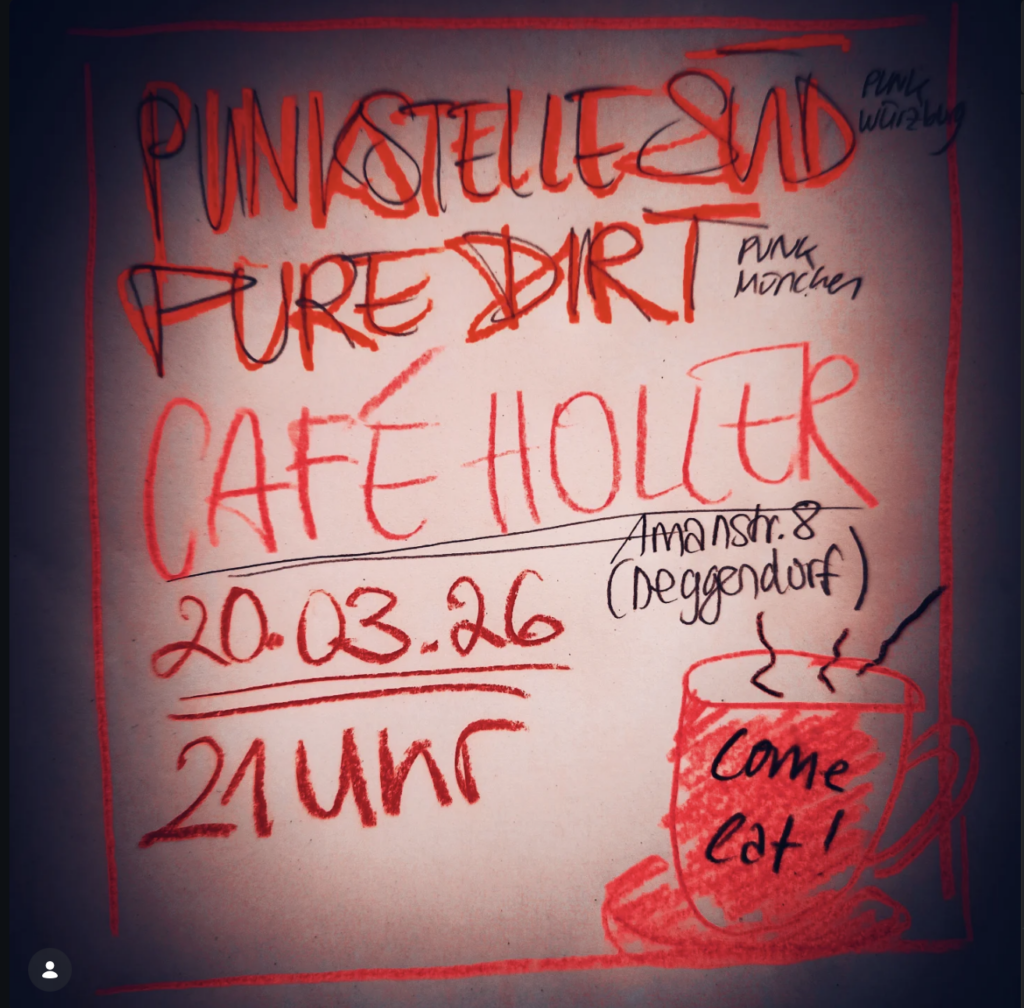 PUNKSTELLE SÜD
PUNK
Würzburg
PURE DIRT
PUNK
München
CAFÉ HOLLER
Amanstr. 8
(Deggendorf)
20.03.26
21 Uhr
Come
eat!